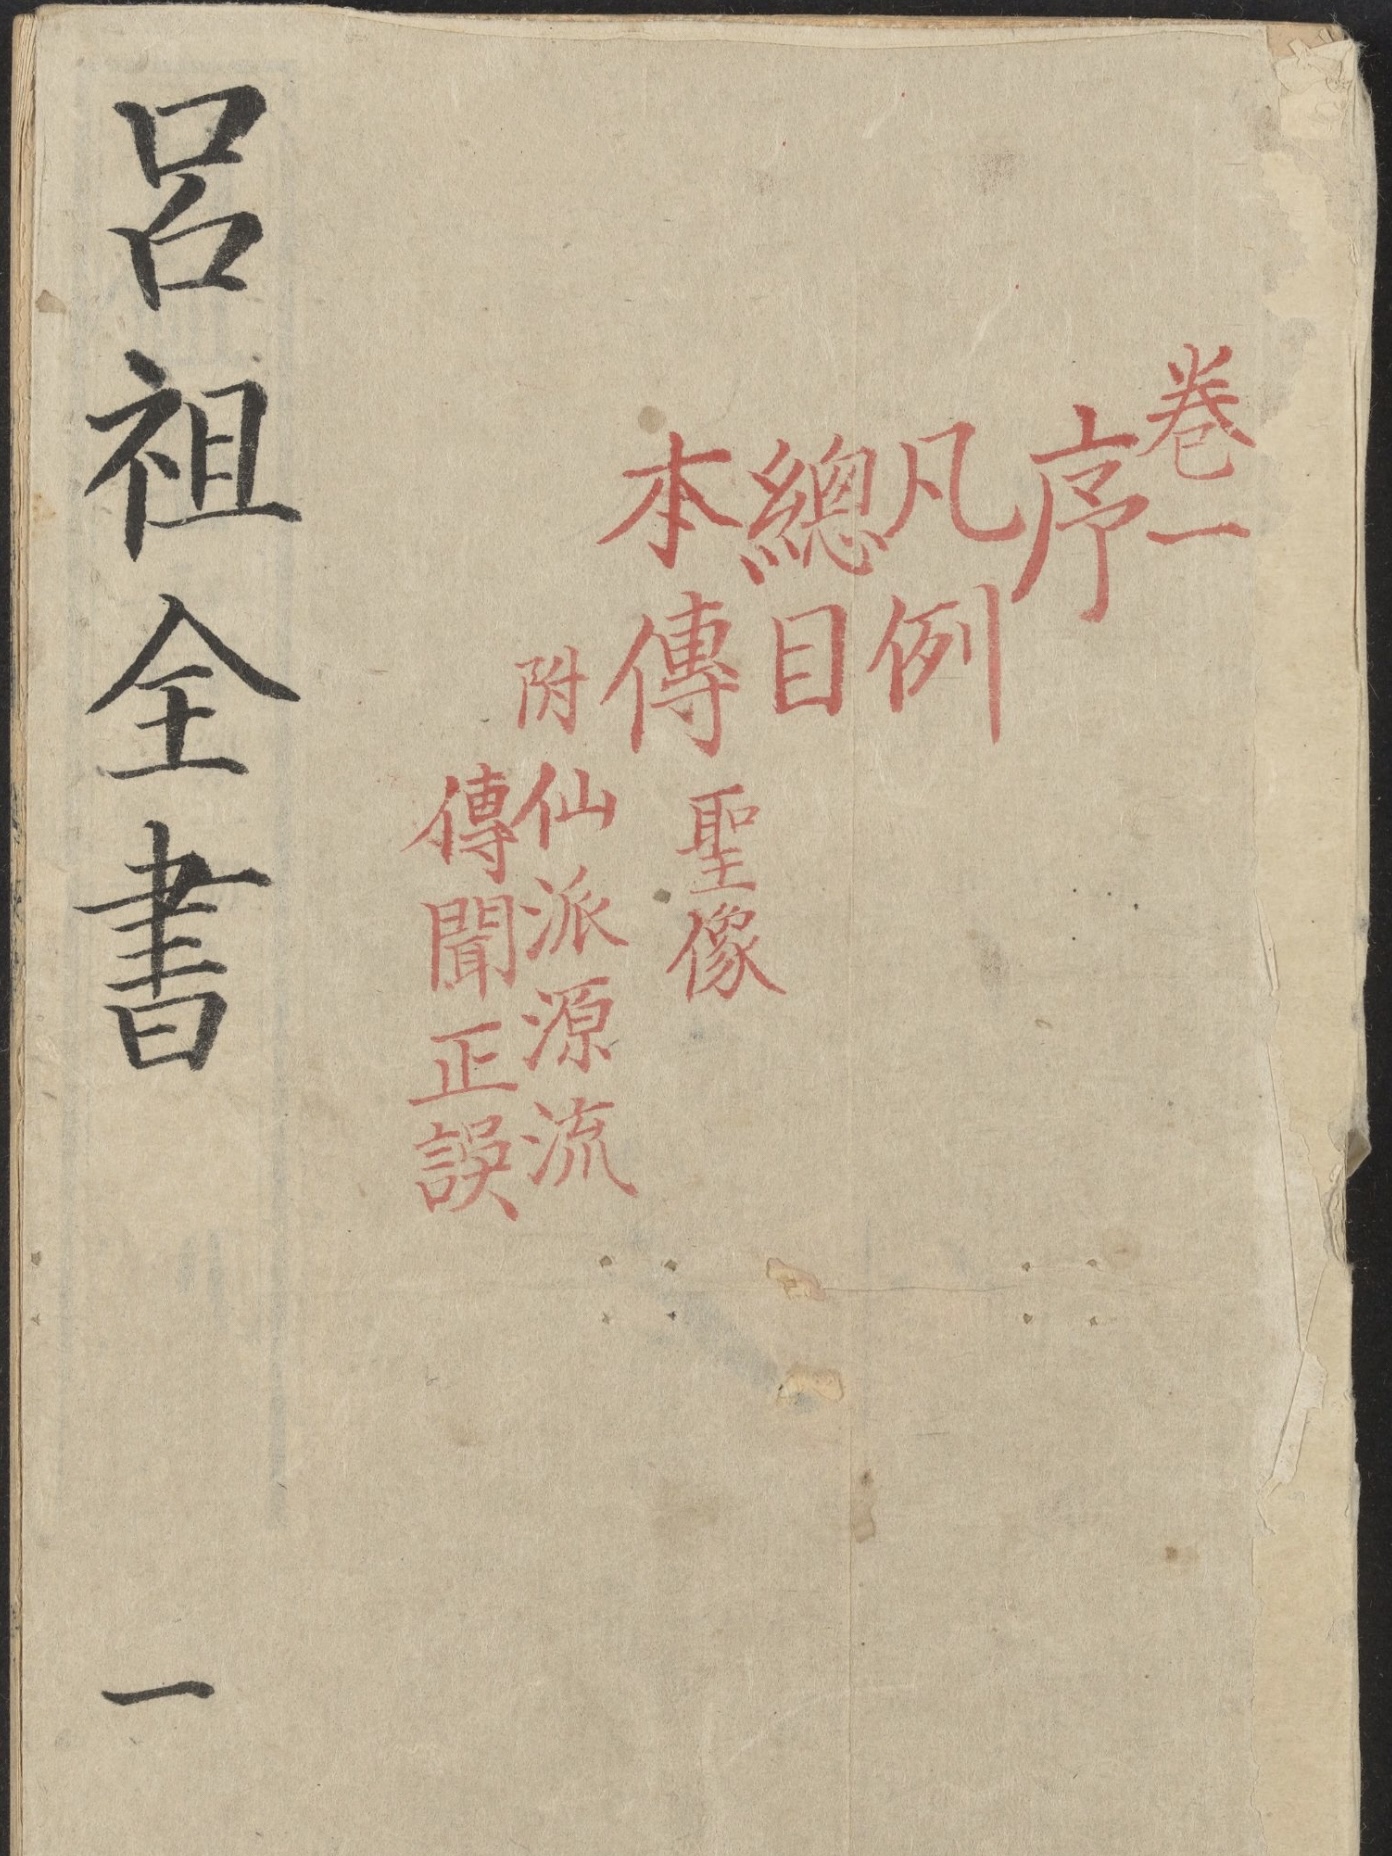 卷一
序
凡例
總目
本傳 聖像
附 仙派源流
傳聞正誤
呂祖全書 一